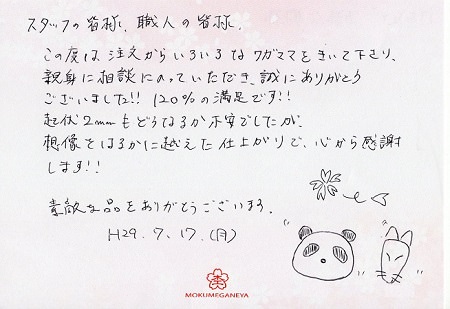 スタッフの皆様、職人の皆様、
この度は注文からいろいろなワガママをきいて下さり、
親身に相談にのっていただき、誠にありがとう
ございました!! 120%の満足です!!
起伏2mmもどうなるか不安でしたが、
想像をはるかに越えた仕上がりで、心から感謝
します!!
素敵な品をありがとうございます。
H29.7.17.(月)
MOKUMEGANEYA